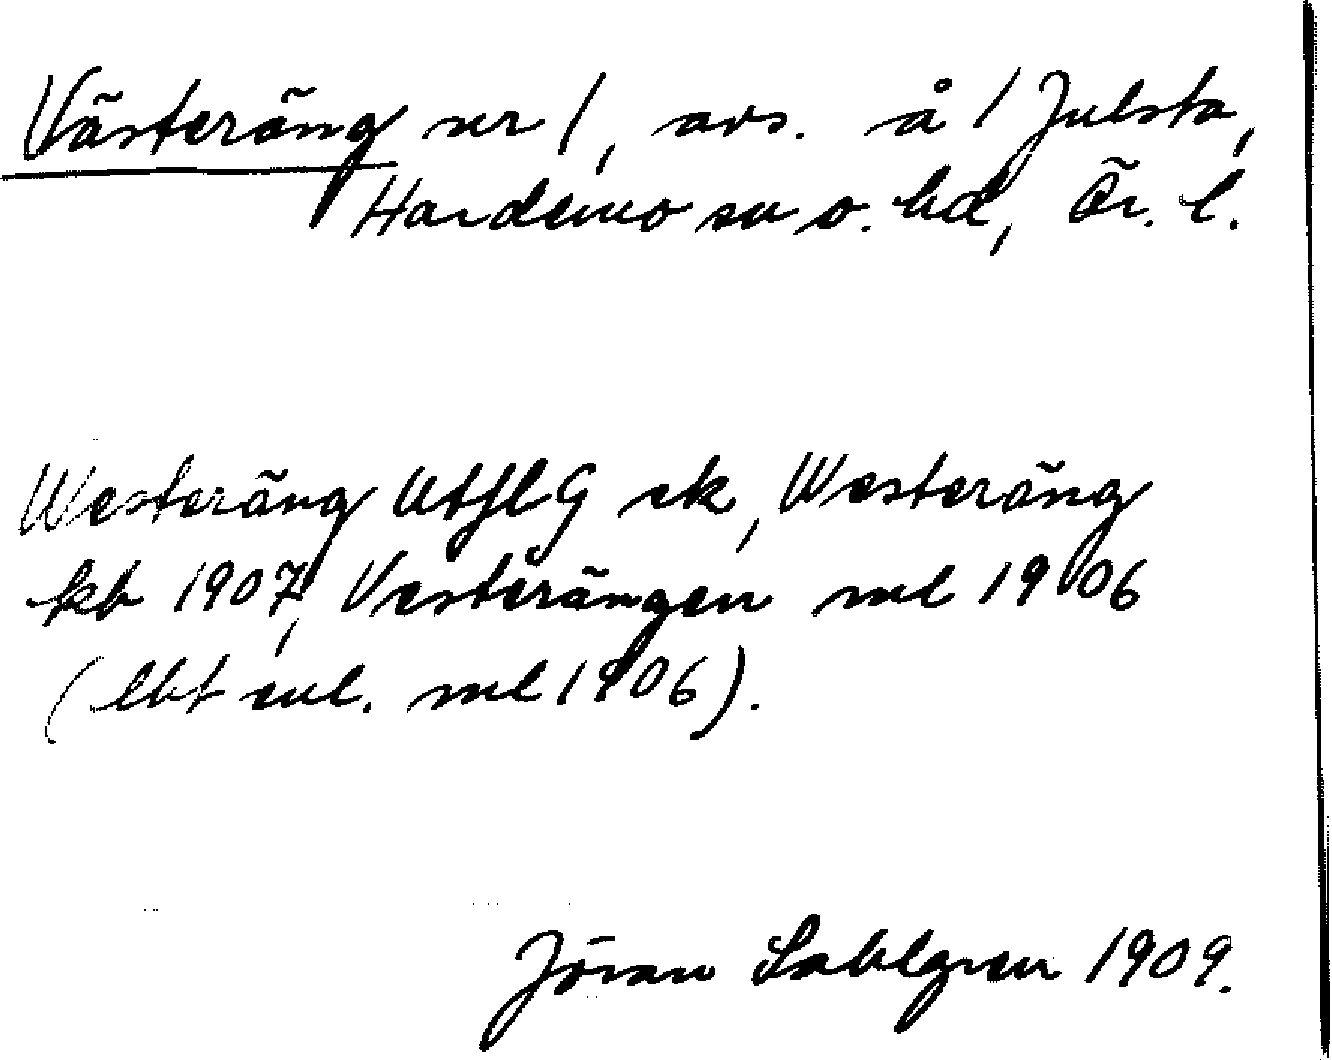 Västeräng nr 1, avs. å 1 Julsta,
Hardemo sn o. hd, Ör. l.
Westeräng UtjLG ek, Westeräng
kb 1907, Vesterängen ml 1906
(lbt enl. ml 1906).
Jöran Sahlgren 1909.